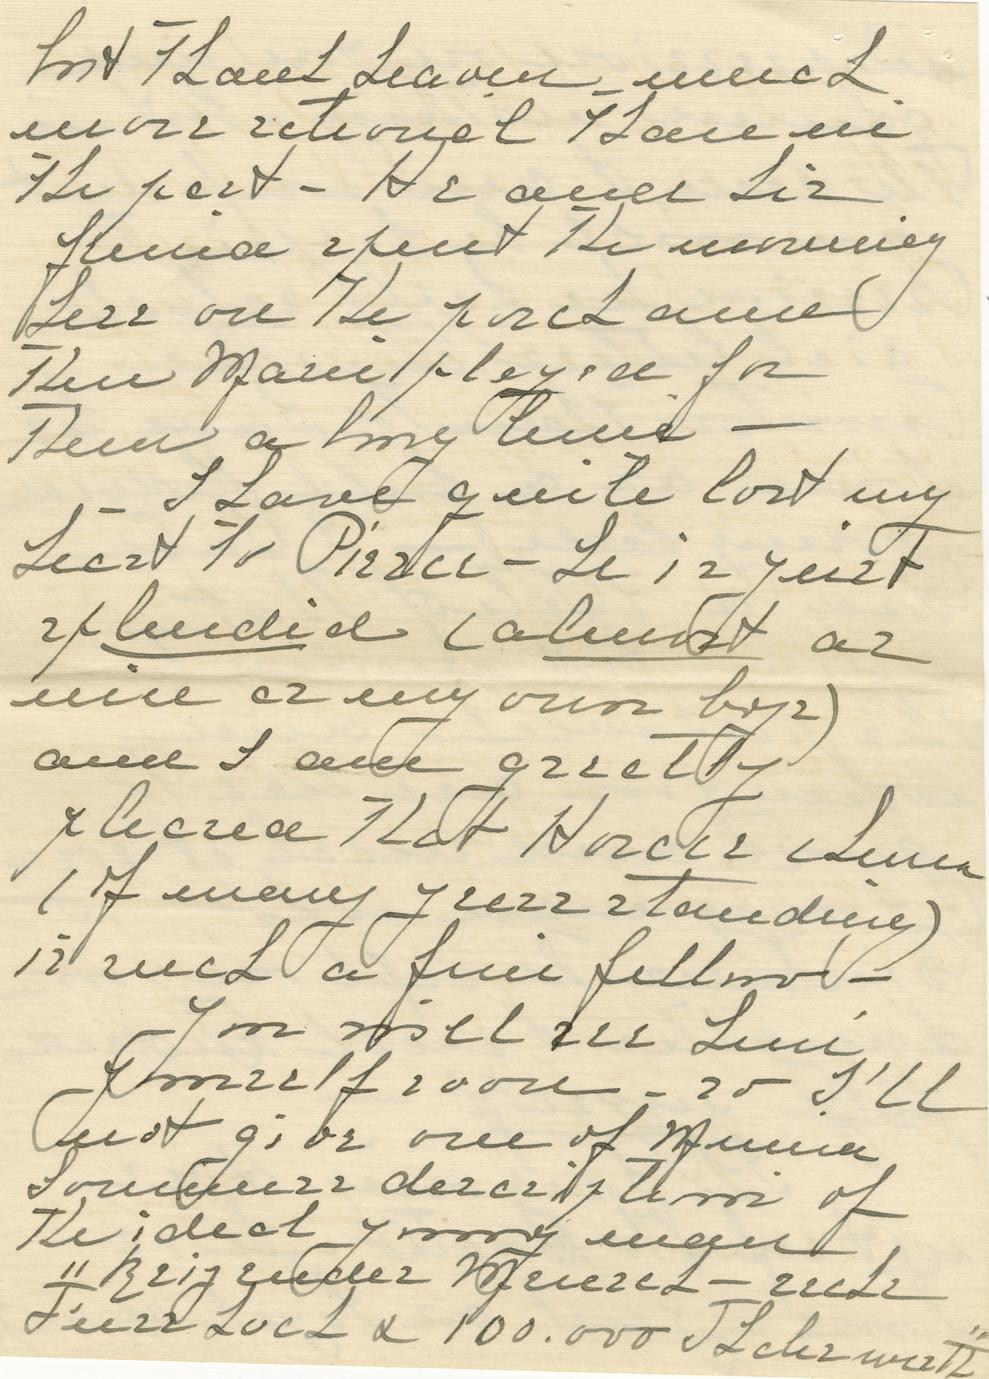 but thank heaven, much
more rational than in
the past - He and his
fiancé spent the morning
here on the porch and
then Marie played for
them a long time -
- I have quite lost my
heart to Pierce - he is just
splendid (almost as
nice as my own boys)
and I am greatly
pleased that Horace
(of many years standing)
is such a fine fellow -
You will see him
yourself soon - so I'll
not give one of Minna
descriptions of
the ideal young man
"Reizender Mensch - sechs
Fuss hoch & 100.000 Thaler werth"